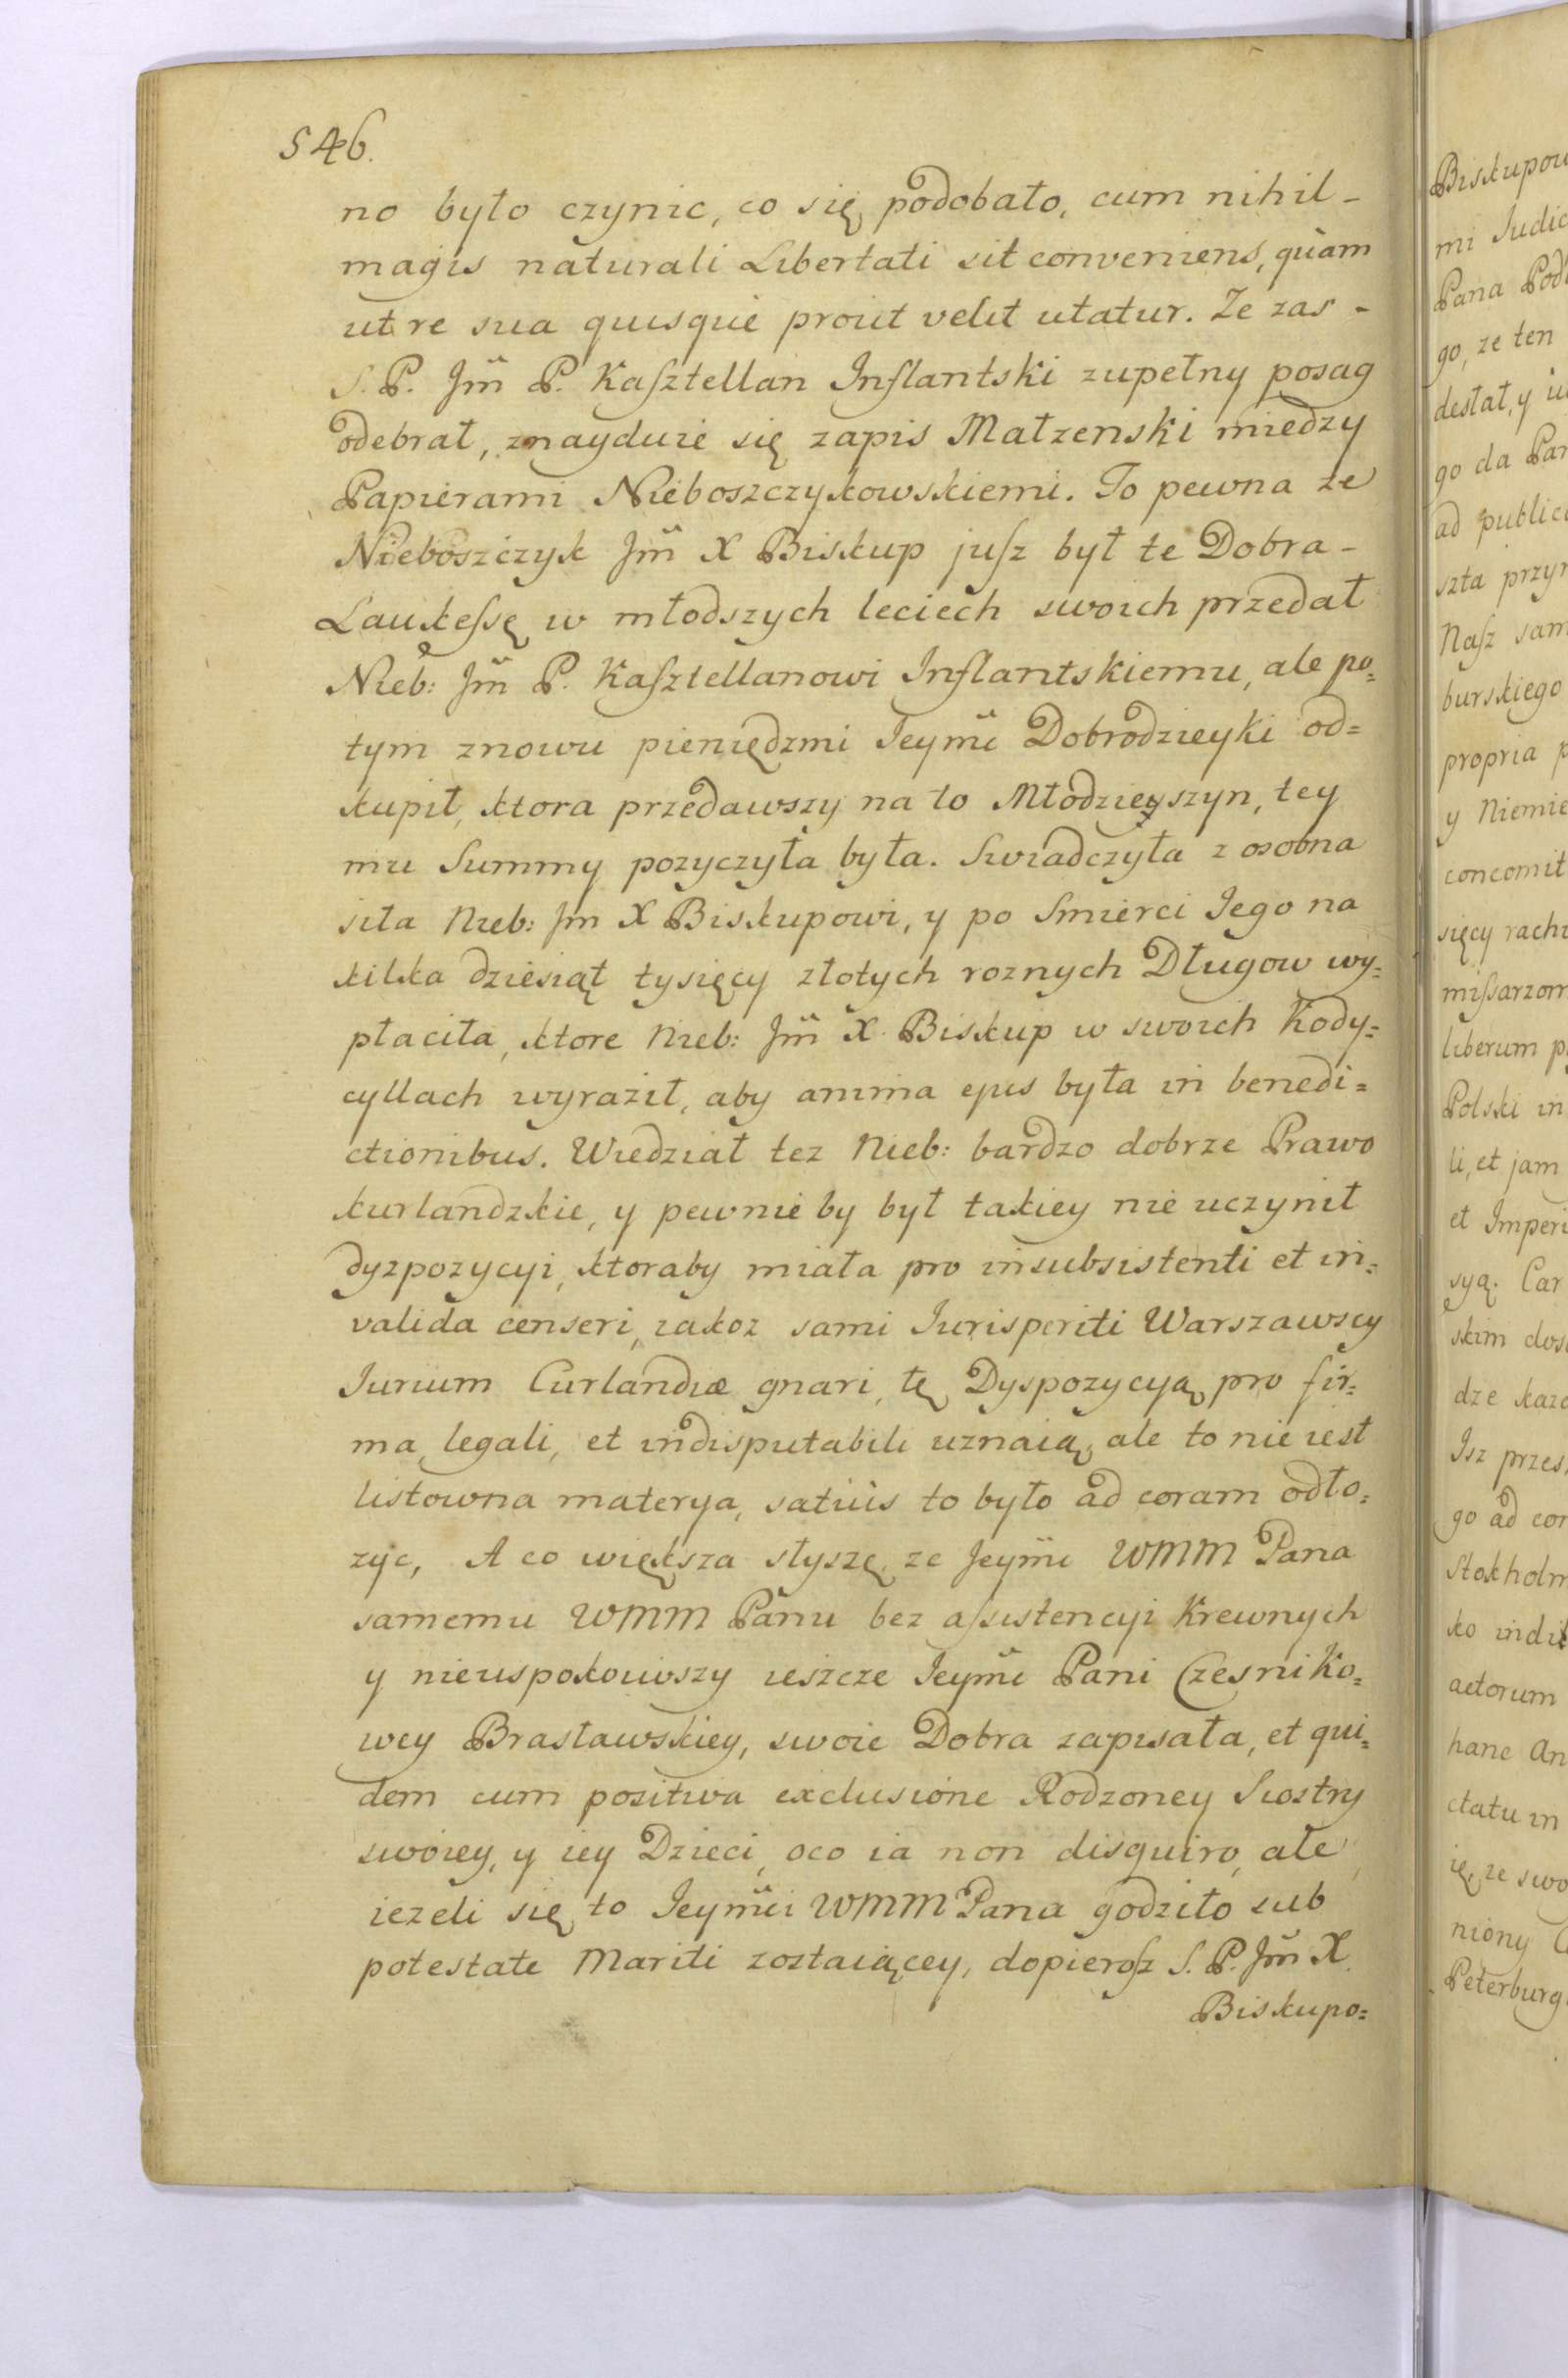 546.
no było czynic, co się podobało, cum nihil-
magis naturali Libertati sit conveniens, quam
ut re sua quisque prout velit utatur. Ze zas-
S. P. Jm̃ P. Kaſztellan Inflantski zupełny posag
odebrał, znayduie się zapis Małzenski miedzy
Papierami Nieboszczykowskiemi. To pewna ze
Nieboszczyk Jm̃ X Biskup juſz był te Dobra-
Laukeſsę w młodszych leciech swoich przedał
Nieb: Jm̃ P. Kaſztellanowi Inflantskiemu, ale po=
tym znowu pieniędzmi Jeym̃ Dobrodzieyki od=
kupił, ktora przedawszy na to Młodzieyszyn, tey
mu Summy pozyczyła była. Swiadczyła z osobna
siła Nieb: Jm X Biskupowi, y po Smierci Jego na
kilka dziesiąt tysięcy złotych roznych Długow wy=
płaciła, ktore Nieb: Jm̃ X Biskup w swoich Kody=
cyllach wyraził, aby anima ejus była in benedi=
ctionibus. Wiedział tez Nieb: bardzo dobrze Prawo
kurlandzkie, y pewnie by był takiey nie uczynił
dyzpozycyi, ktoraby miała pro insubsistenti et in=
valida censeri, iakoz sami Jurisperiti Warszawscy
Jurium Curlandiæ gnari, tę Dyspozycyą pro fir=
ma, legali, et indisputabili uznaią, ale to nie iest
listowna materya, satius to było ad coram odło=
zyc, A co większa słyszę, ze Jeym̃ WMM Pana
samemu WMM Panu bez aſsistencyi Krewnych
y nieuspokoiwszy ieszcze Jeym̃ Pani CzesniKo=
wey Brasławskiey, swoie Dobra zapisała, et qui=
dem cum positiva exclusione Rodzoney Siostry
swoiey, y iey Dzieci, oco ia non disquiro, ale
iezeli się to Jeym̃ci WMM Pana godziło sub
potestate Mariti zostaiącey, dopieroſz S. P. Jm̃ X.
Biskupo=
Biskupow
mi Judic
Pana
go, ze ten
destał, y
go da Pan
ad public
szta przy
Naſz sam
burskiego
propria p
y Niemie
concomit
sięcy rach
miſsarzom
liberum p
Polski in
li, et jam
et Imperi
syą. Car
skim dos
dze kazd
Isz przes
go ad cor
Stokholm
ko indi
actorum
hanc An
ctatu in
ię, ze swo
niony
Peterburg